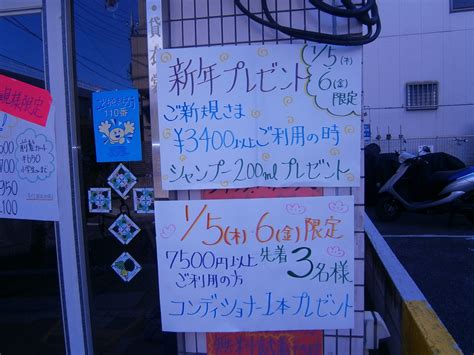 貸衣
新年プレゼント
1/5(木)
6(金)
限定
ご新規さま
¥3400以上ご利用の時
シャンプー200mlプレゼント
1/5(木)・6(金)限定
7500円以上
ご利用の方
先着
3名様
コンディショナー1本プレゼント
110番
様限定
¥650
950
100